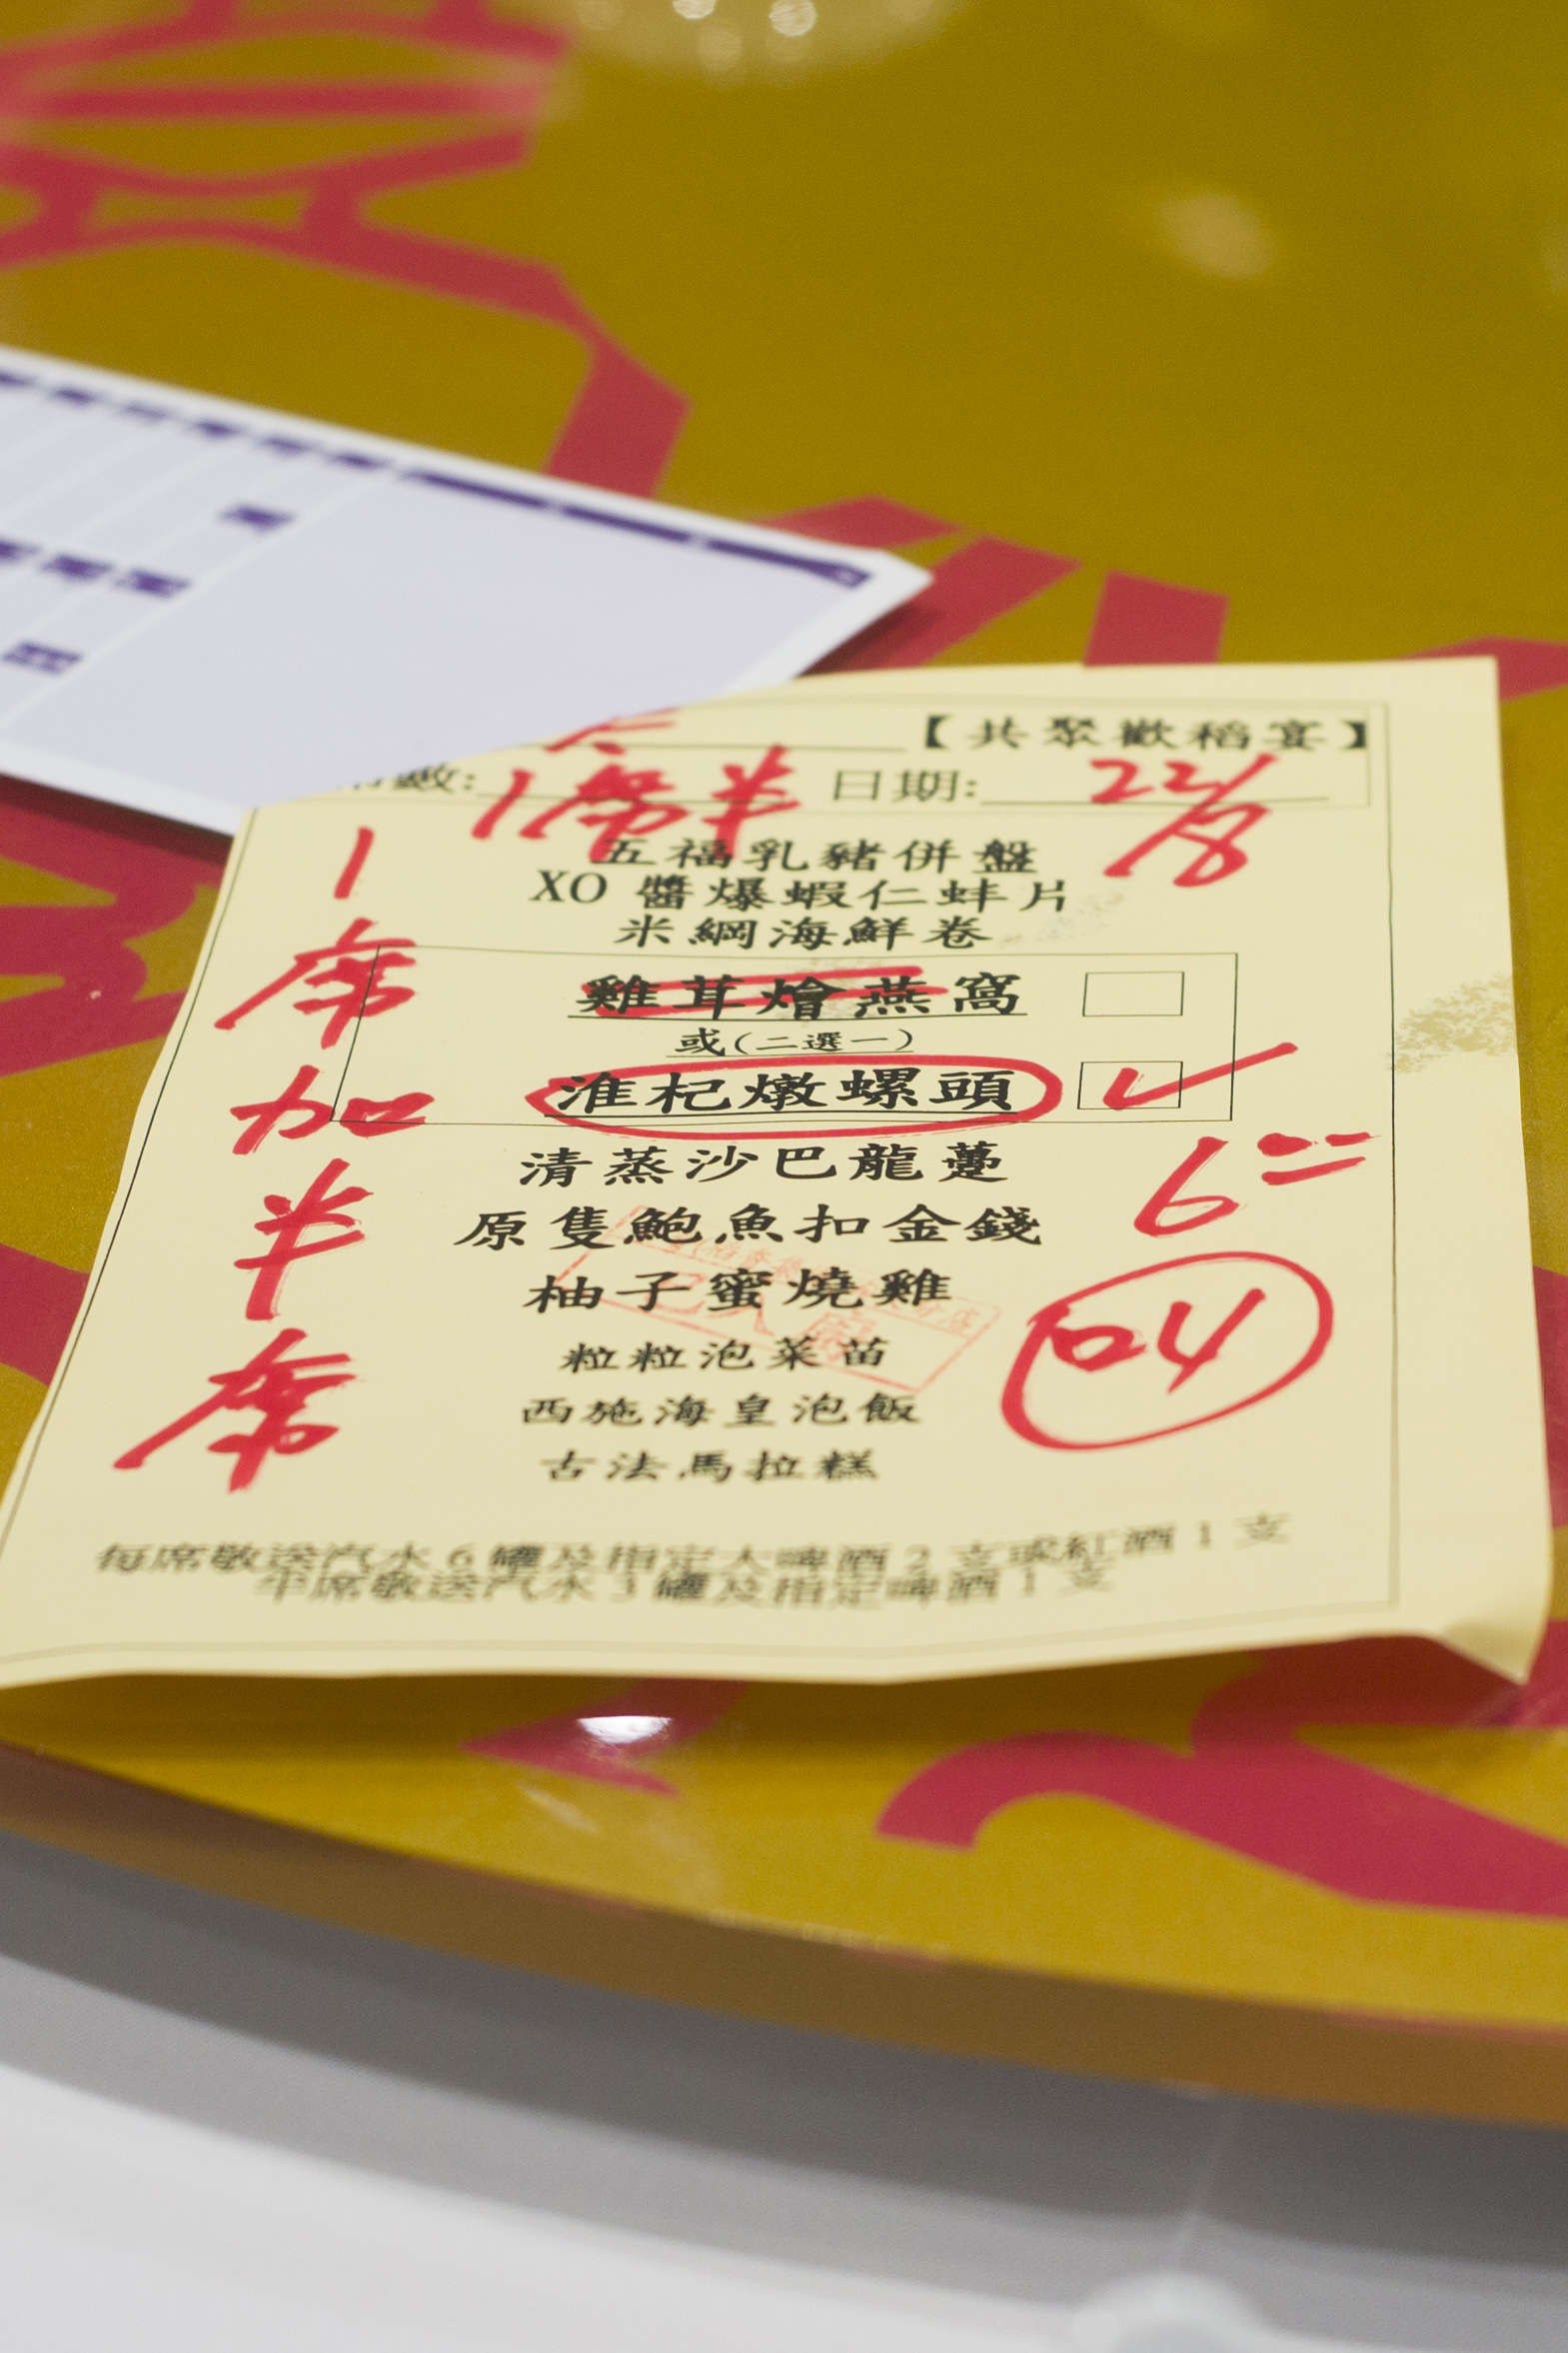 【共聚歡稻宴】
數: 1席半 日期: 22/8
五福乳豬併盤
XO 醬爆蝦仁蚌片
米綱海鮮卷
雞茸燴燕窩
或(二選一)
淮杞燉螺頭 ✓
清蒸沙巴龍躉
原隻鮑魚扣金錢
柚子蜜燒雞
粒粒泡菜苗
西施海皇泡飯
古法馬拉糕
每席敬送汽水 6 罐及指定大啤酒 2 支或紅酒 1 支
半席敬送汽水 3 罐及指定啤酒 1 支
1
席
加
半
席